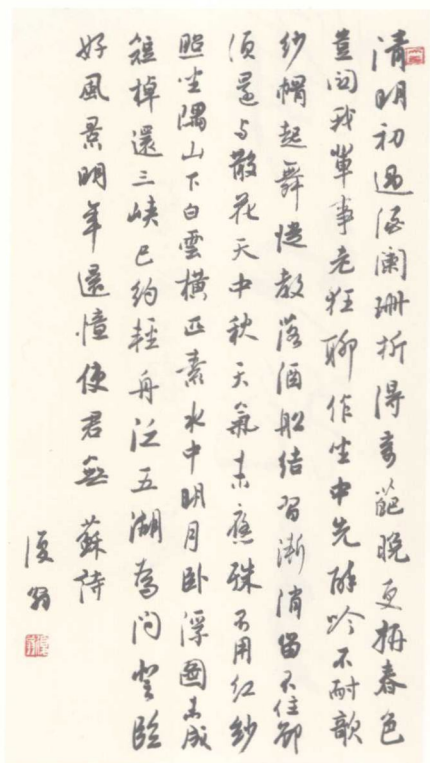 清明初過酒闌珊折得奇葩晚更妍春色
豈関我輩事老狂聊作坐中先醉吟不耐欹
紗帽起舞從教落酒船結習漸消留不住卻
須還與散花天中秋天氣未應殊不用紅紗
照坐隅山下白雲橫匹素水中明月臥浮圖未成
短棹還三峽已約輕舟泛五湖為問登臨
好風景明年還憶使君無 蘇詩
復翁